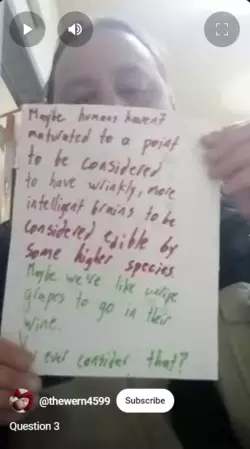 Maybe humans haven't
maturated to a point
to be considered
to have wrinkly, more
intelligent brains to be
considered edible by
some higher species.
Maybe we're like unripe
grapes to go in their
wine.
ever consider that?
@thewern4599
Subscribe
Question 3